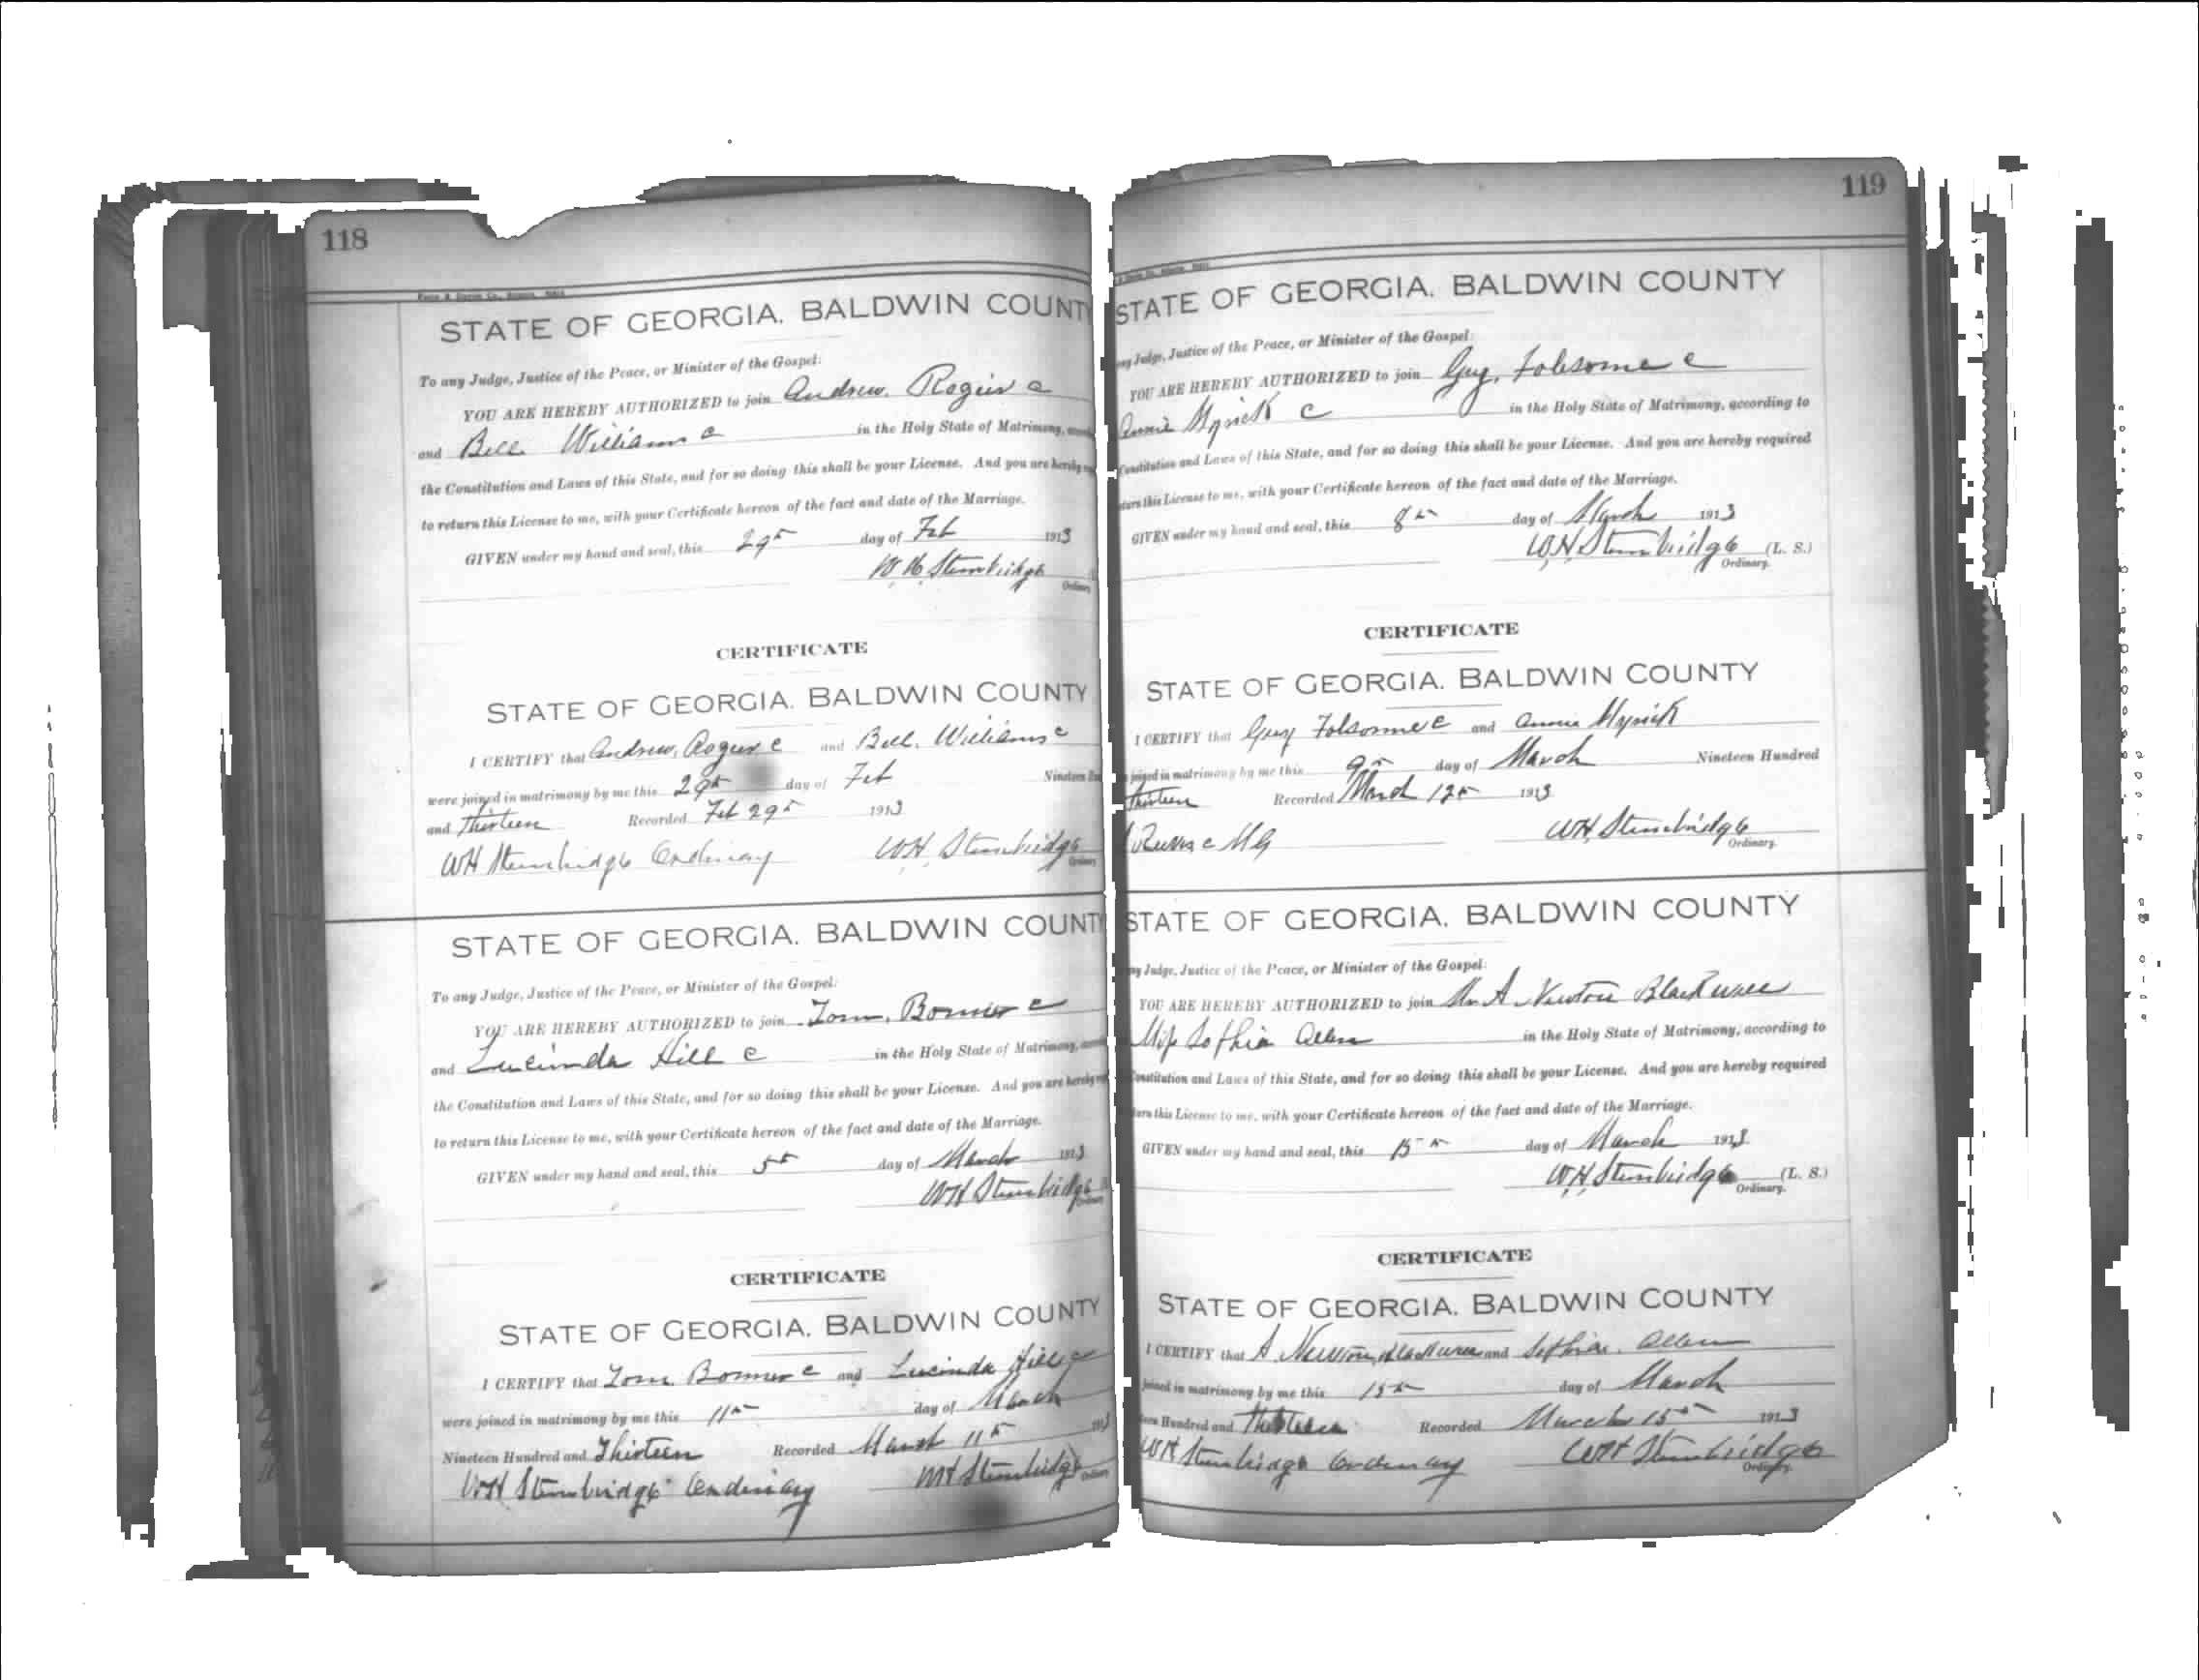 118
STATE OF GEORGIA. BALDWIN COUNTY
To any Judge, Justice of the Peace, or Minister of the Gospel:
YOU ARE HEREBY AUTHORIZED to join Andrew. c
and Williams c in the Holy State of Matrimony,
the Constitution and Laws of this State, and for so doing this shall be your License. And you are hereby
to return this License to me, with your Certificate hereon of the fact and date of the Marriage.
GIVEN under my hand and seal, this 29th day of Feb 1913
W. H. Stembridge
Ordinary
CERTIFICATE
STATE OF GEORGIA. BALDWIN COUNTY
I CERTIFY that Andrew. c and Williams c
were joined in matrimony by me this 29th day of Feb Nineteen
and Thirteen Recorded Feb 29th 1913
WH Stembridge Ordinary W.H. Stembridge
Ordinary
STATE OF GEORGIA. BALDWIN COUNTY
To any Judge, Justice of the Peace, or Minister of the Gospel:
YOU ARE HEREBY AUTHORIZED to join Tom. Bonner c
and Lucinda Hill c in the Holy State of Matrimony,
the Constitution and Laws of this State, and for so doing this shall be your License. And you are hereby
to return this License to me, with your Certificate hereon of the fact and date of the Marriage.
GIVEN under my hand and seal, this 5th day of March 1913
WH Stembridge
Ordinary
CERTIFICATE
STATE OF GEORGIA. BALDWIN COUNTY
I CERTIFY that Tom Bonner c and Lucinda Hill c
were joined in matrimony by me this 11th day of March
Nineteen Hundred and Thirteen Recorded March 11th 1913
WH Stembridge Ordinary WH Stembridge
Ordinary
119
STATE OF GEORGIA. BALDWIN COUNTY
any Judge, Justice of the Peace, or Minister of the Gospel:
YOU ARE HEREBY AUTHORIZED to join Guy. Folsome c
Annie Myrick c in the Holy State of Matrimony, according to
Constitution and Laws of this State, and for so doing this shall be your License. And you are hereby required
return this License to me, with your Certificate hereon of the fact and date of the Marriage.
GIVEN under my hand and seal, this 8th day of March 1913
W.H. Stembridge (L. S.)
Ordinary.
CERTIFICATE
STATE OF GEORGIA. BALDWIN COUNTY
I CERTIFY that Guy Folsome c and Annie Myrick
joined in matrimony by me this 9th day of March Nineteen Hundred
Thirteen Recorded March 12th 1913
MG WH, Stembridge
Ordinary.
STATE OF GEORGIA. BALDWIN COUNTY
any Judge, Justice of the Peace, or Minister of the Gospel:
YOU ARE HEREBY AUTHORIZED to join Mr A. Newton Blackwell
Miss Sophia Allen in the Holy State of Matrimony, according to
Constitution and Laws of this State, and for so doing this shall be your License. And you are hereby required
return this License to me, with your Certificate hereon of the fact and date of the Marriage.
GIVEN under my hand and seal, this 15th day of March 1913
W.H. Stembridge (L. S.)
Ordinary.
CERTIFICATE
STATE OF GEORGIA. BALDWIN COUNTY
I CERTIFY that A Newton Blackwell and Sophia. Allen
joined in matrimony by me this 15th day of March
Hundred and Thirteen Recorded March 15th 1913
WH Stembridge Ordinary WH Stembridge
Ordinary.